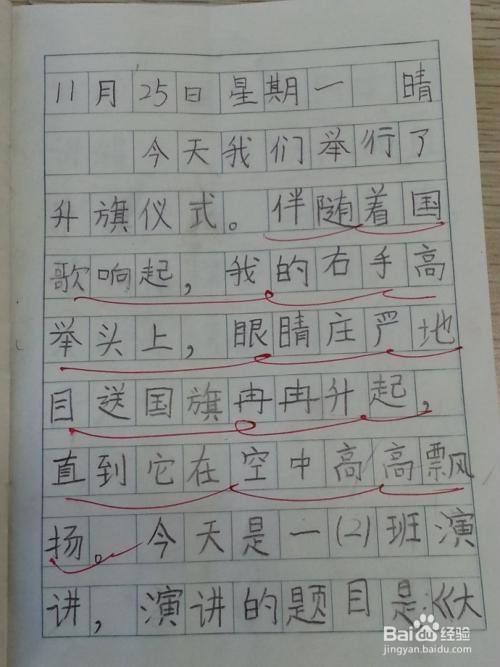 11月25日星期一 晴
今天我们举行了
升旗仪式。伴随着国
歌响起，我的右手高
举头上，眼睛庄严地
目送国旗冉冉升起，
直到它在空中高高飘
扬。今天是一(2)班演
讲，演讲的题目是:《大
Bai度经验
jingyan.baidu.com